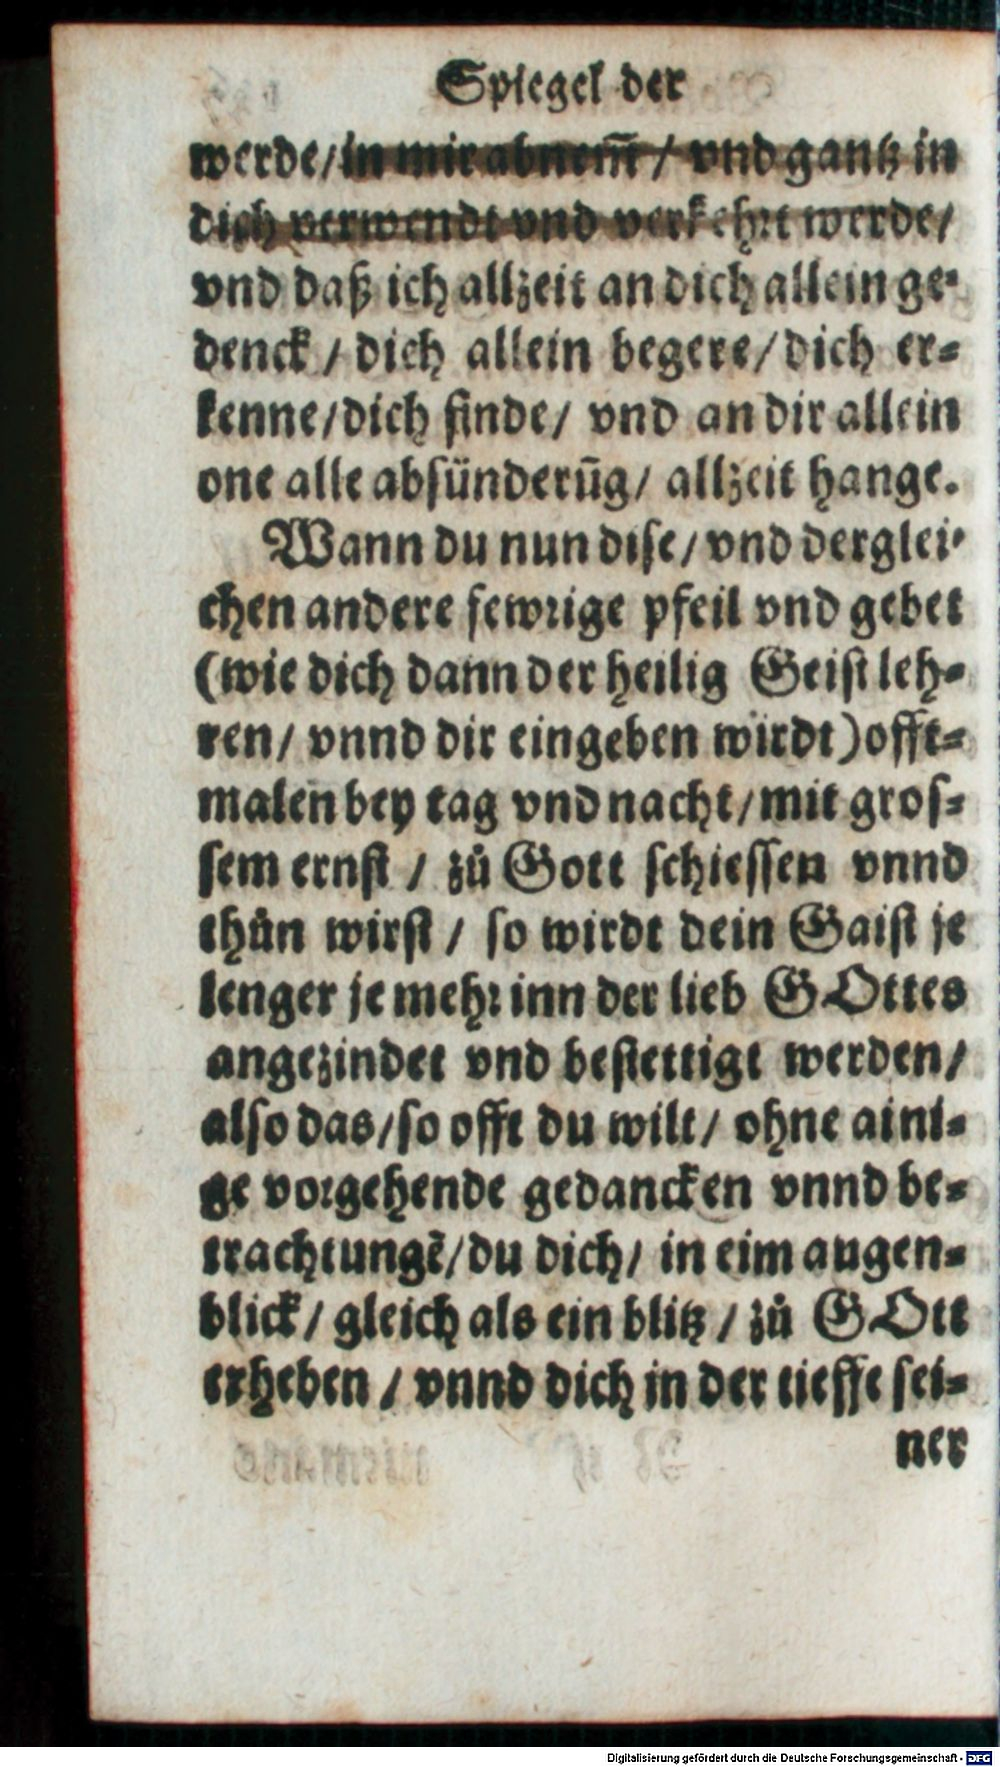 Spiegel der
werde/in mir abnem̃ / vnd gantz in
dich verwendt vnd verkehrt werde/
vnd daß ich allzeit an dich allein ge-
denck / dich allein begere/dich er-
kenne/dich finde/ vnd an dir allein
one alle absünderũg/ allzeit hange.
Wann du nun dise/vnd derglei-
chen andere fewrige pfeil vnd gebet
(wie dich dann der heilig Geist leh-
ren/ vnnd dir eingeben wirdt)offt-
malen bey tag vnd nacht/mit gros-
sem ernst / zů Gott schiessen vnnd
thůn wirst / so wirdt dein Gaist je
lenger je mehr inn der lieb GOttes
angezindet vnd bestettigt werden/
also das/so offt du wilt/ ohne aini-
ge vorgehende gedancken vnnd be-
trachtungẽ/du dich/ in eim augen-
blick/ gleich als ein blitz / zů GOtt
erheben / vnnd dich in der tieffe sei-
ner
Digitalisierung gefördert durch die Deutsche Forschungsgemeinschaft - DFG